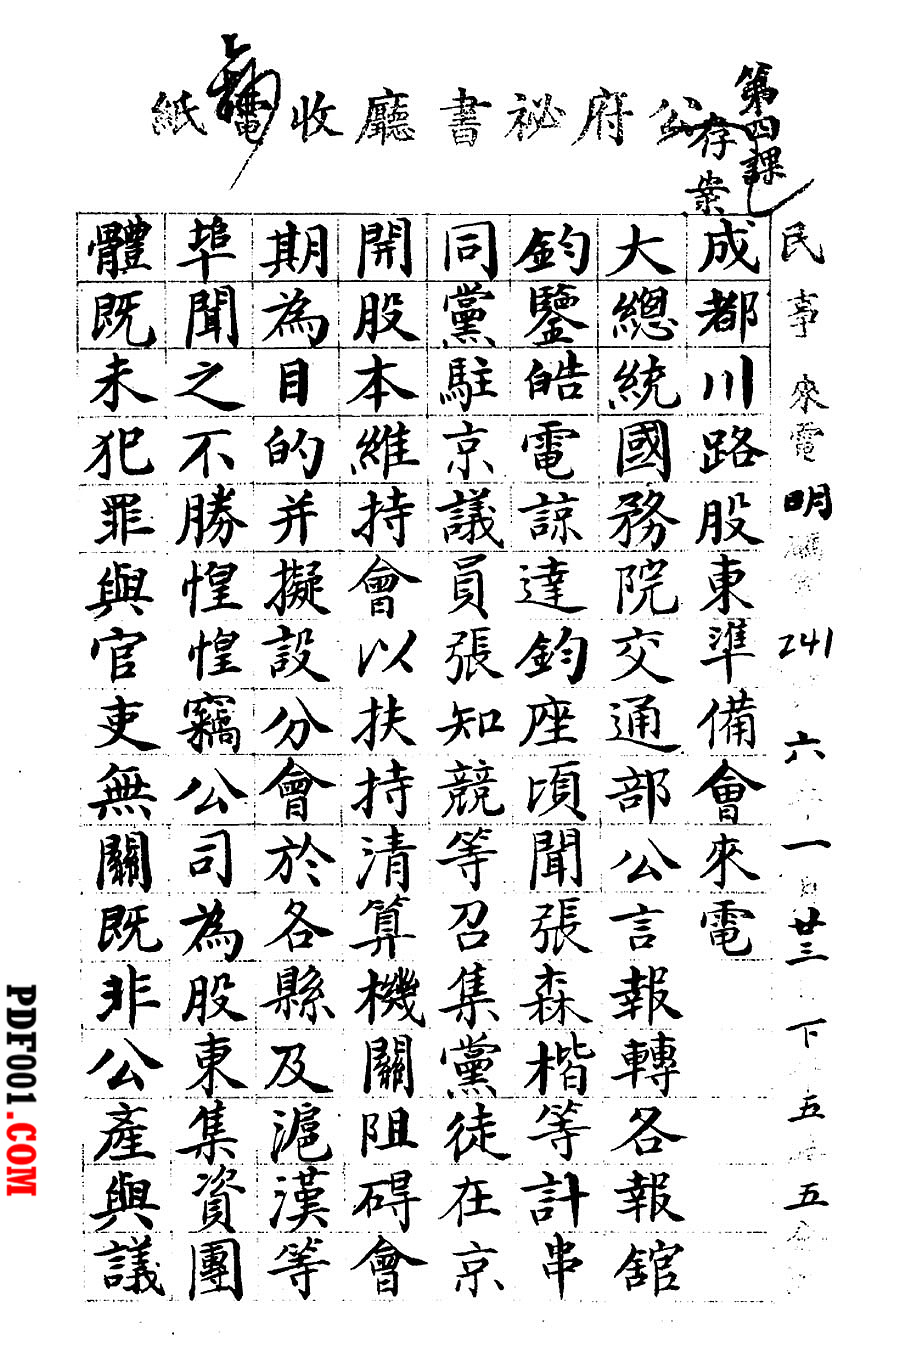 公府祕書廳收電紙
第四課
存案
民事 來電 明 241 六 一 廿三 下 五 五
成都川路股東準備會來電
大總統國務院交通部公言報轉各報舘
鈞鑒皓電諒達鈞座頃聞張森楷等計串
同黨駐京議員張知競等召集黨徒在京
開股本維持會以扶持清算機關阻碍會
期為目的并擬設分會於各縣及滬漢等
埠聞之不勝惶惶竊公司為股東集資團
體既未犯罪與官吏無關既非公產與議
PDF001.COM